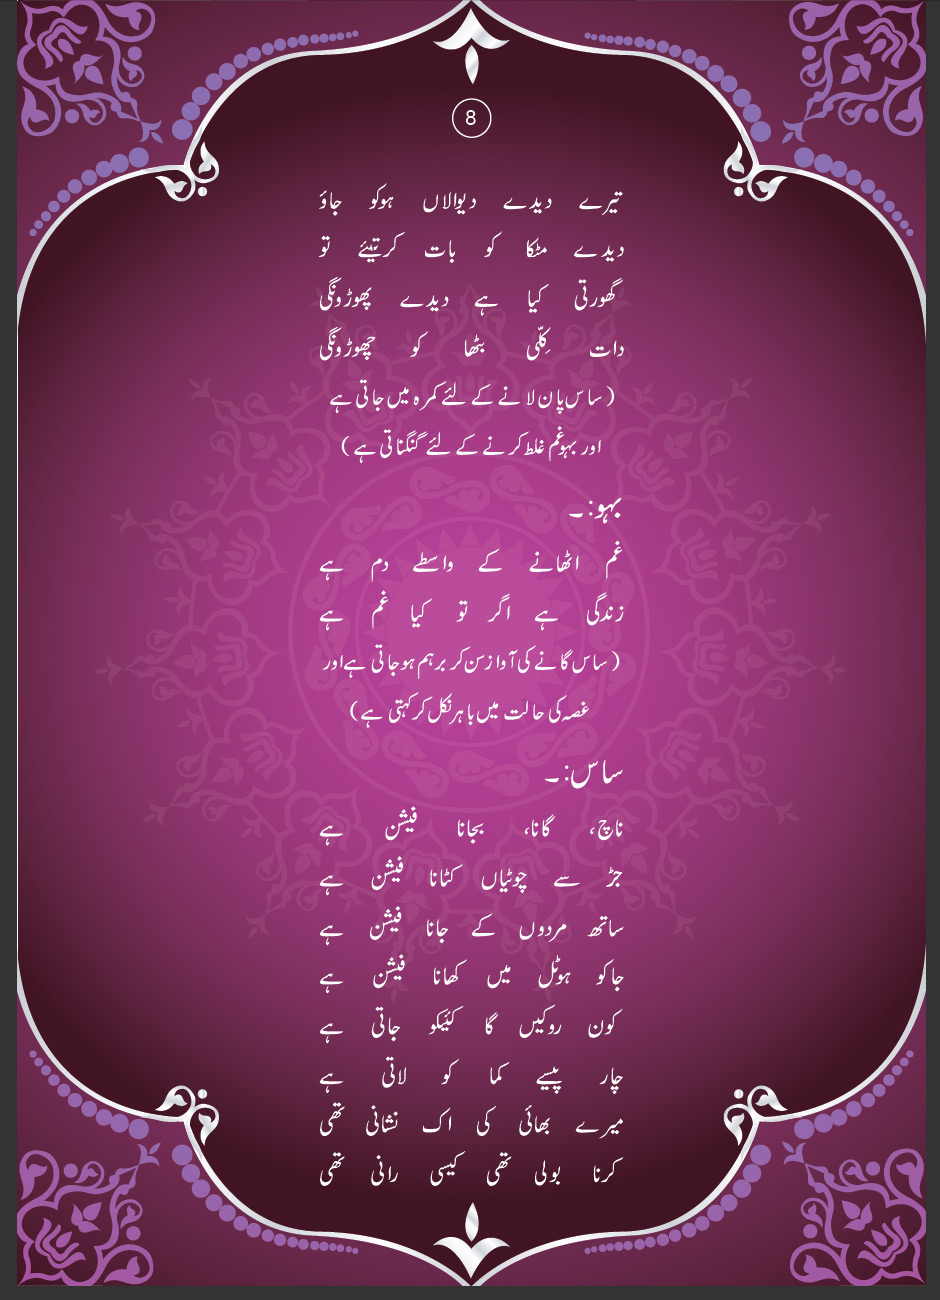 8
تیرے دیدے دیوالاں ہوکو جاؤ
دیدے مٹکا کو بات کرتیئے تو
گھورتی کیا ہے دیدے پھوڑونگی
دات کِلّی بٹھا کو چھوڑونگی
(ساس پان لانے کے لئے کمرہ میں جاتی ہے
اور بہو غم غلط کرنے کے لئے گنگناتی ہے)
بہو:۔
غم اٹھانے کے واسطے دم ہے
زندگی ہے اگر تو کیا غم ہے
(ساس گانے کی آواز سن کر برہم ہوجاتی ہے اور
غصہ کی حالت میں باہر نکل کر کہتی ہے)
ساس:۔
ناچ، گانا، بجانا فیشن ہے
جڑ سے چوٹیاں کٹانا فیشن ہے
ساتھ مردوں کے جانا فیشن ہے
جاکو ہوٹل میں کھانا فیشن ہے
کون روکیں گا کئیکو جاتی ہے
چار پیسے کما کو لاتی ہے
میرے بھائی کی اک نشانی تھی
کرنا بولی تھی کیسی رانی تھی